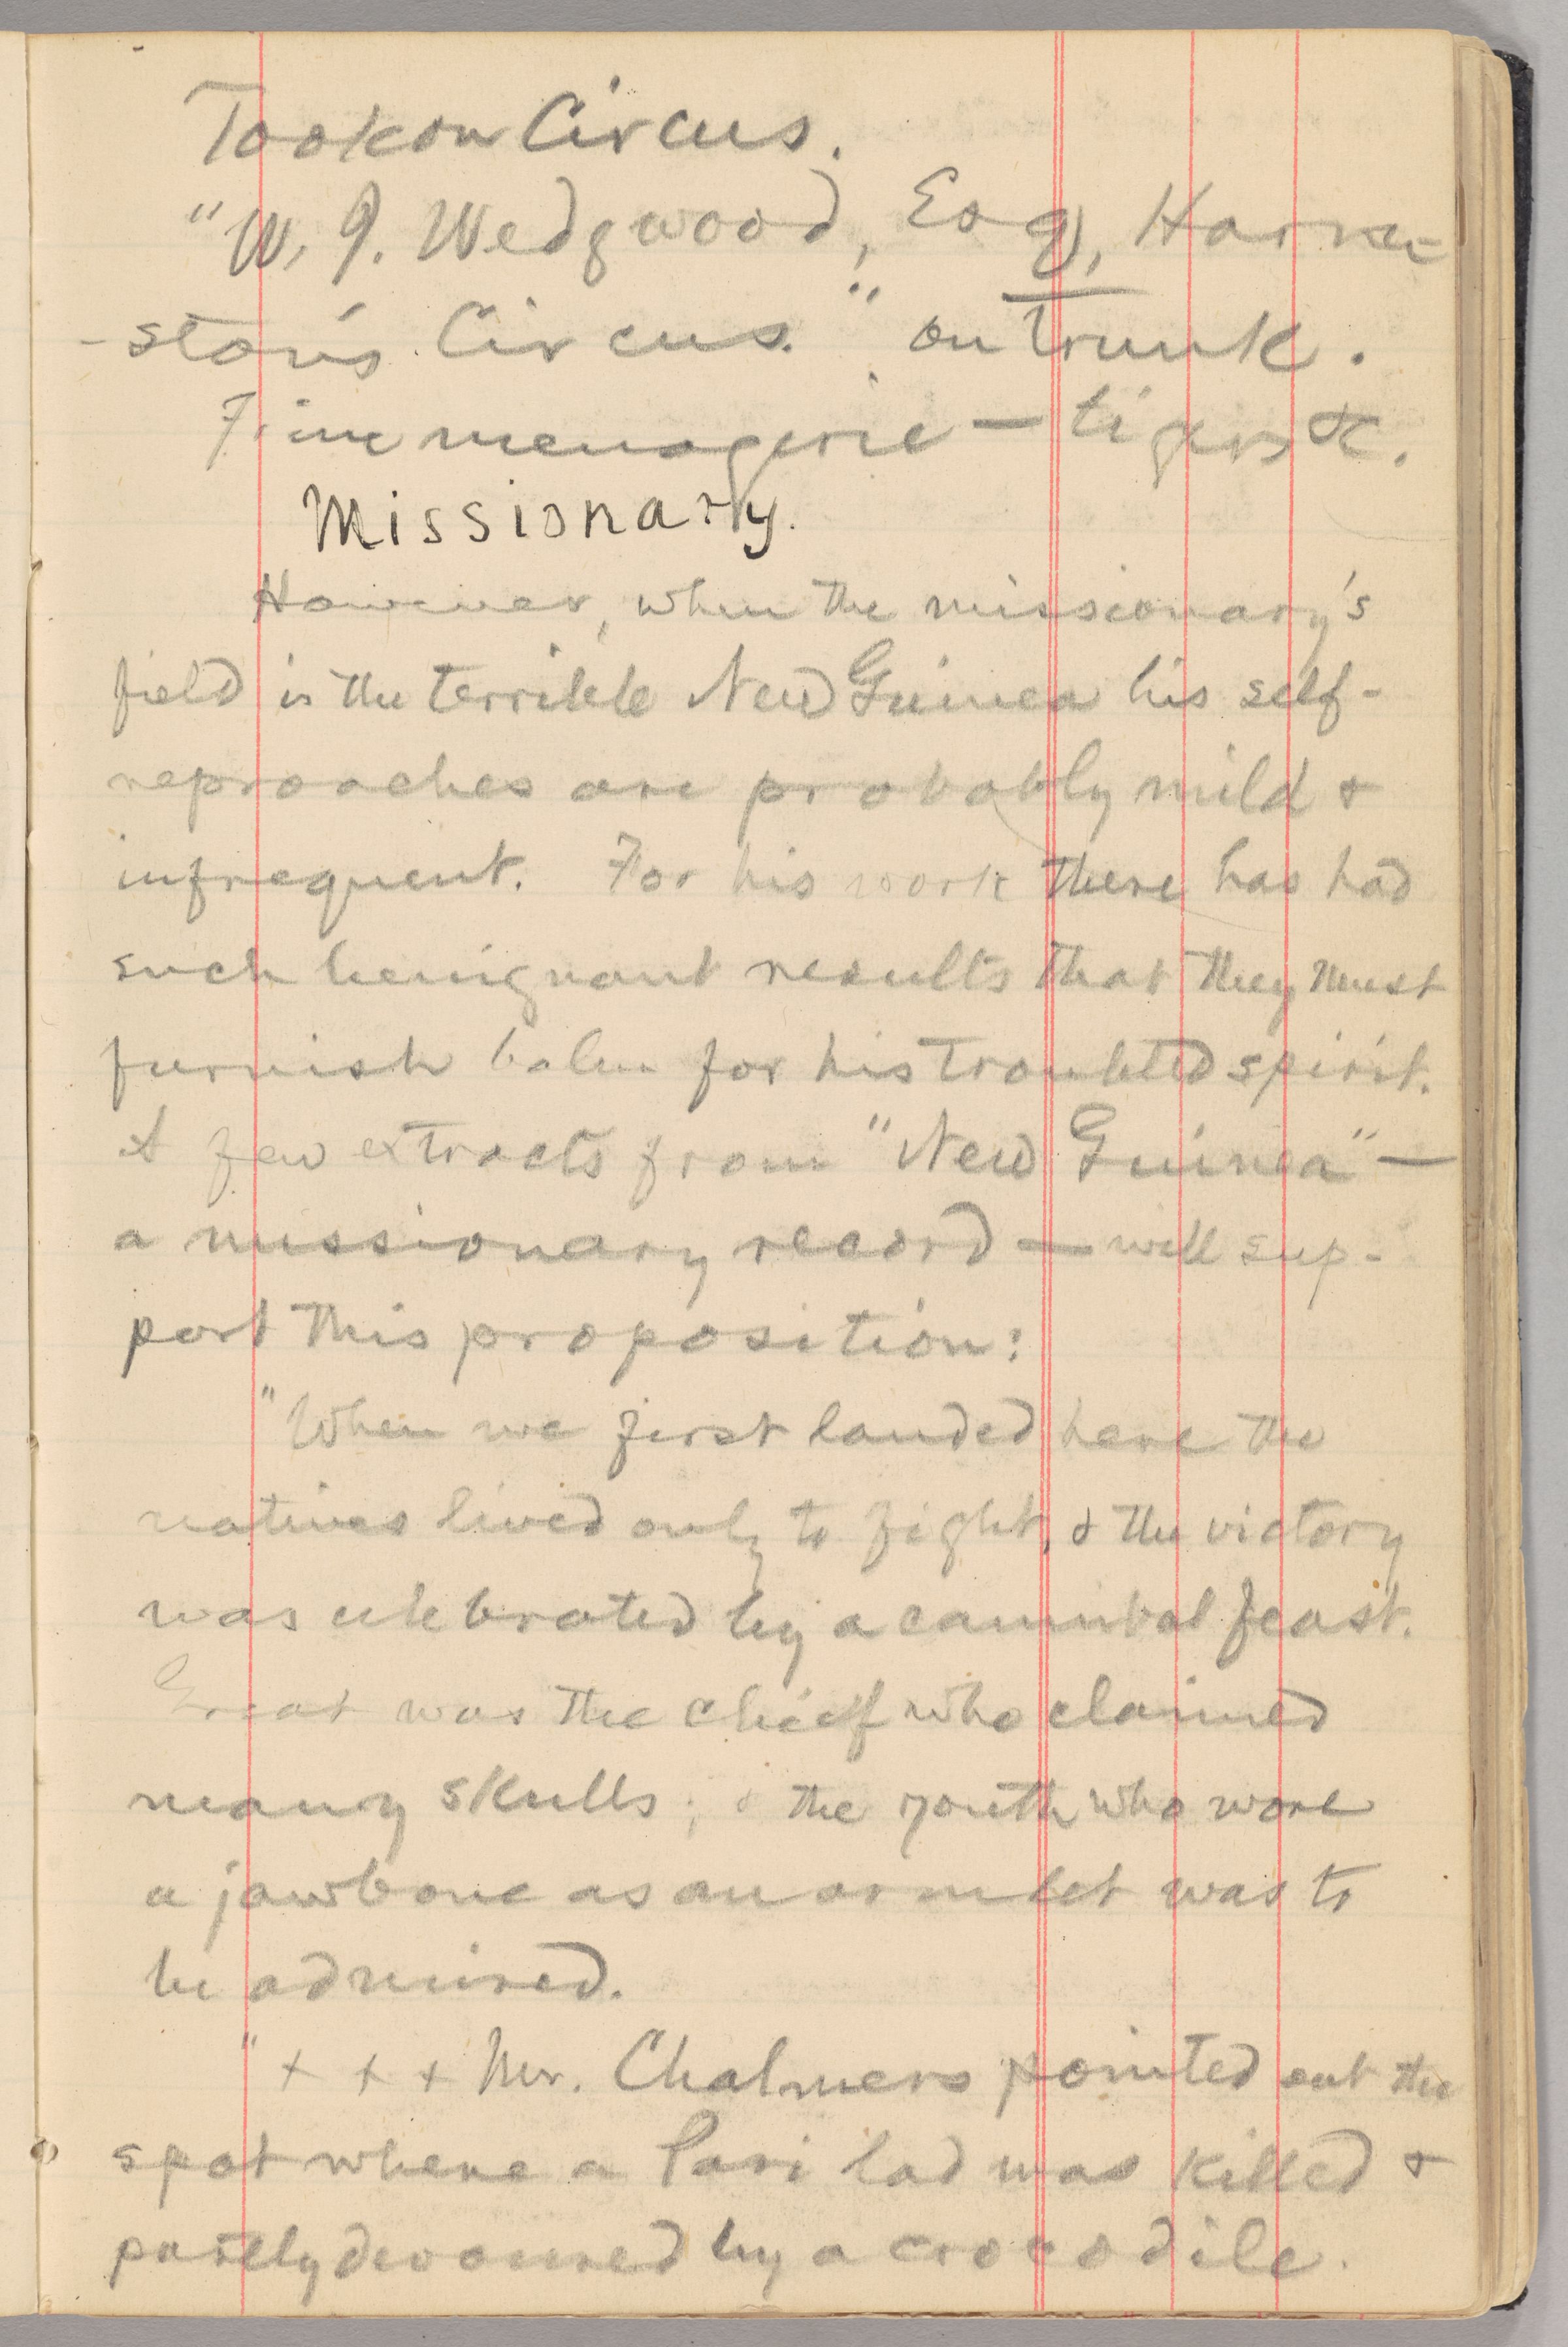 Took on Circus.
"W. J. Wedgwood, Esq, Harme-
-ston's Circus." on trunk.
Fine menagerie — tigers &c.
Missionary.
However, when the missionary's
field is the terrible New Guinea his self-
reproaches are probably mild &
infrequent. For his work there has had
such benignant results that they must
furnish balm for his troubled spirit.
A few extracts from "New Guinea" —
a missionary record — will sup-
port this proposition:
"When we first landed here the
natives lived only to fight, & the victory
was celebrated by a cannibal feast.
Great was the chief who claimed
many skulls; & the youth who wore
a jawbone as an armlet was to
be admired.
"+ + + Mr. Chalmers pointed out the
spot where a Pari lad was killed &
partly devoured by a crocodile.